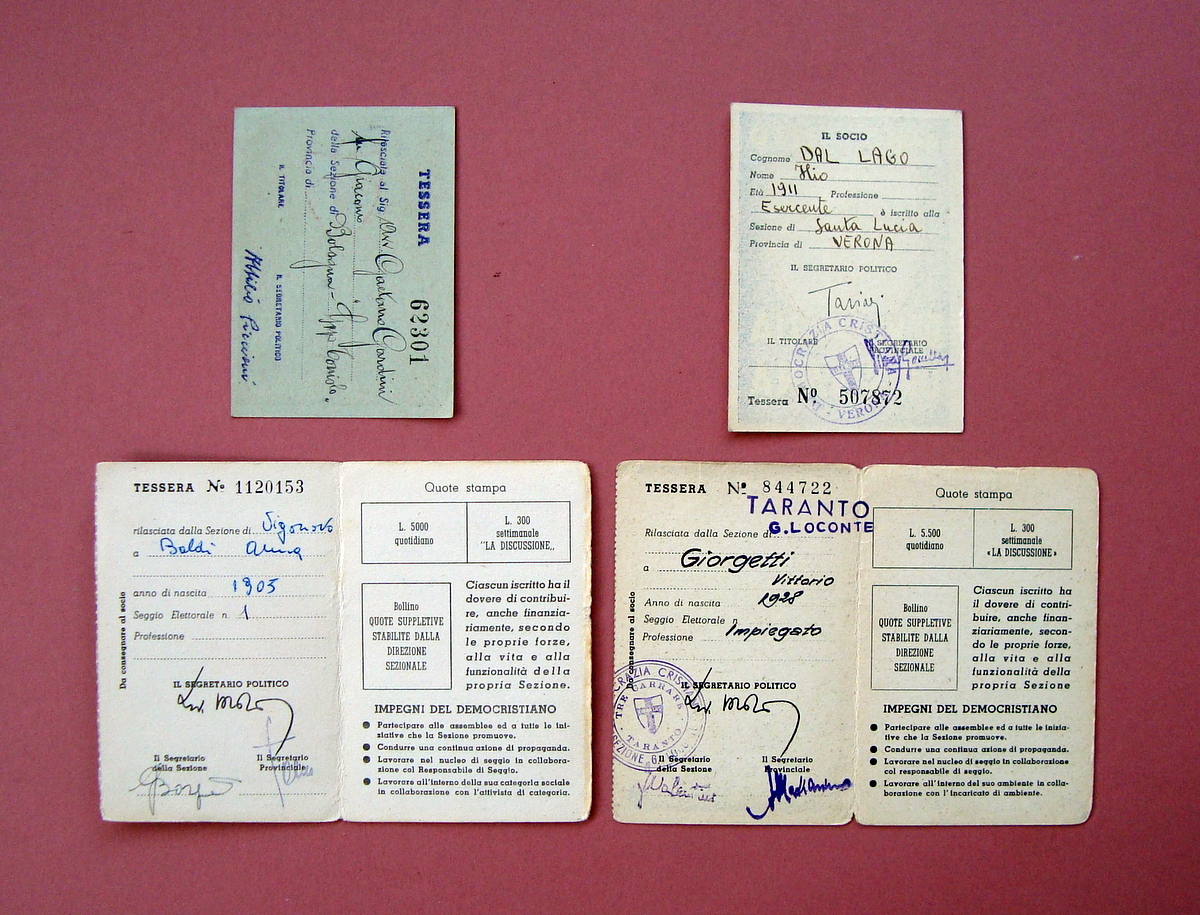 TESSERA 62301
Rilasciata al Sig. Avv. Gaetano Gardini
fu Giacomo
della Sezione di Bologna -
Provincia di
IL TITOLARE IL SEGRETARIO POLITICO
Attilio Piccioni
IL SOCIO
Cognome DAL LAGO
Nome
Età 1911 Professione
Esercente è iscritto alla
Sezione di Santa Lucia
Provincia di VERONA
IL SEGRETARIO POLITICO
IL TITOLARE IL SEGRETARIO
PROVINCIALE
Tessera Nº 507872
TESSERA Nº 1120153
rilasciata dalla Sezione di Vigonovo
a Baldi Anna
anno di nascita 1905
Seggio Elettorale n. 1
Professione
Da consegnare al socio
IL SEGRETARIO POLITICO
Il Segretario
della Sezione
Il Segretario
Provinciale
Quote stampa
L. 5000
quotidiano
L. 300
settimanale
"LA DISCUSSIONE„
Bollino
QUOTE SUPPLETIVE
STABILITE DALLA
DIREZIONE
SEZIONALE
Ciascun iscritto ha il
dovere di contribui-
re, anche finanzia-
riamente, secondo
le proprie forze,
alla vita e alla
funzionalità della
propria Sezione.
IMPEGNI DEL DEMOCRISTIANO
● Partecipare alle assemblee ed a tutte le ini-
ziative che la Sezione promuove.
● Condurre una continua azione di propaganda.
● Lavorare nel nucleo di seggio in collaborazio-
ne col Responsabile di Seggio.
● Lavorare all'interno della sua categoria sociale
in collaborazione con l'attivista di categoria.
TESSERA Nº 844722
TARANTO
G. LOCONTE
Rilasciata dalla Sezione di
a Giorgetti
Vittorio
Anno di nascita 1928
Seggio Elettorale n.
Professione Impiegato
Da consegnare al socio
IL SEGRETARIO POLITICO
Il Segretario
della Sezione
Il Segretario
Provinciale
Quote stampa
L. 5.500
quotidiano
L. 300
settimanale
«LA DISCUSSIONE»
Bollino
QUOTE SUPPLETIVE
STABILITE DALLA
DIREZIONE
SEZIONALE
Ciascun iscritto ha
il dovere di contri-
buire, anche finan-
ziariamente, secon-
do le proprie forze,
alla vita e alla
funzionalità della
propria Sezione
IMPEGNI DEL DEMOCRISTIANO
● Partecipare alle assemblee ed a tutte le inizia-
tive che la Sezione promuove.
● Condurre una continua azione di propaganda.
● Lavorare nel nucleo di seggio in collaborazione
col responsabile di seggio.
● Lavorare all'interno del suo ambiente in colla-
borazione con l'incaricato di ambiente.